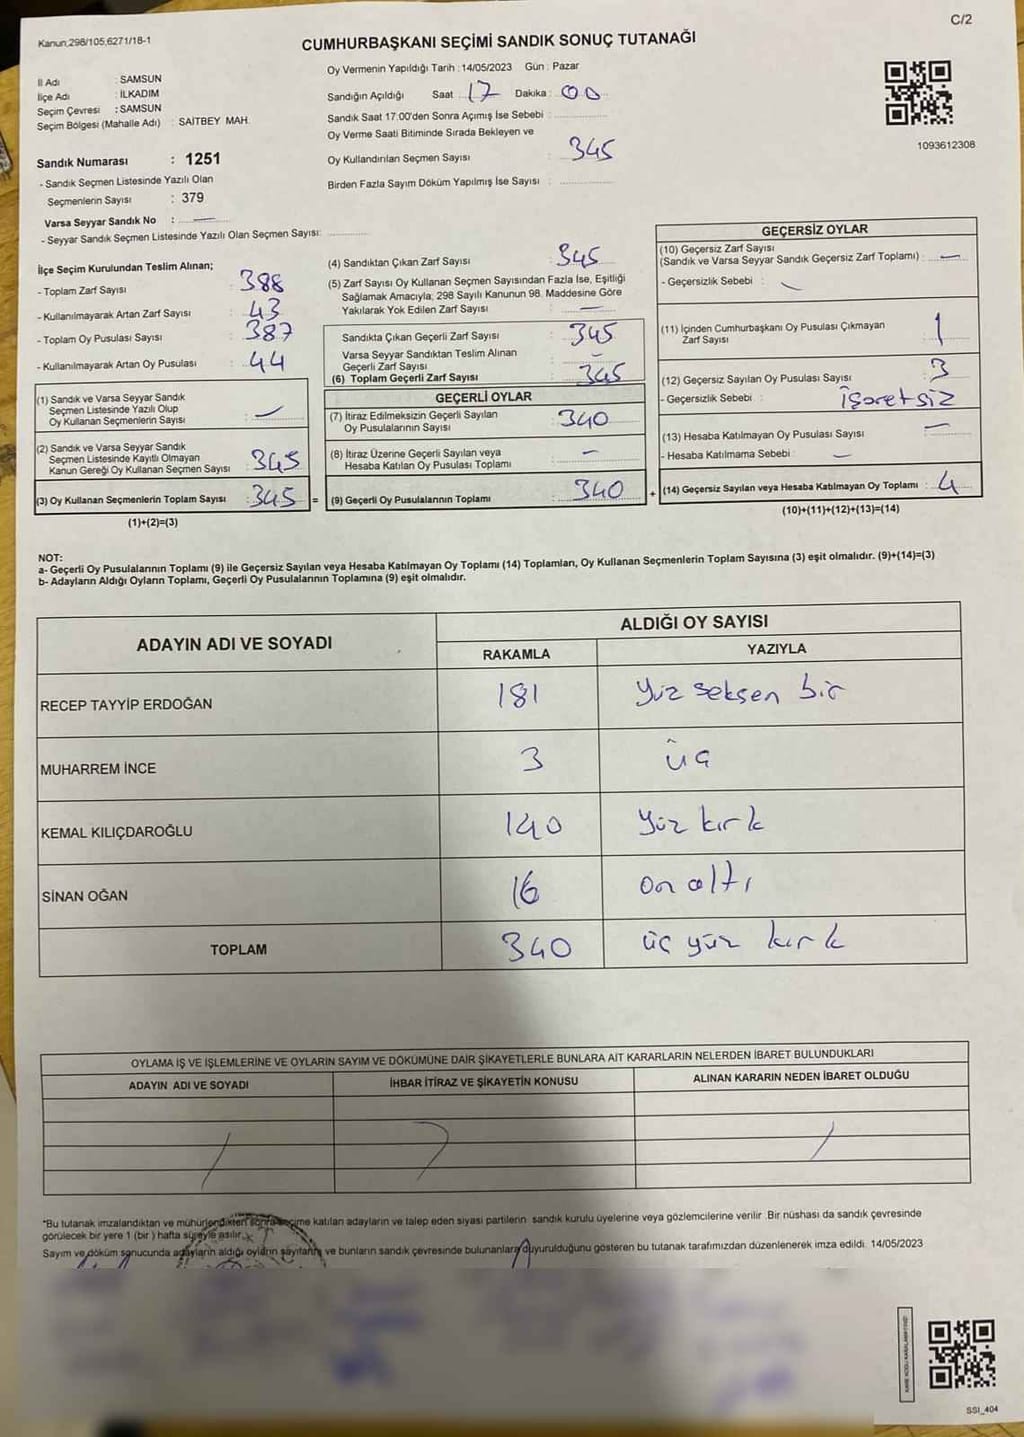 C/2
Kanun,298/105,6271/18-1
CUMHURBAŞKANI SEÇİMİ SANDIK SONUÇ TUTANAĞI
İl Adı : SAMSUN
İlçe Adı : İLKADIM
Seçim Çevresi : SAMSUN
Seçim Bölgesi (Mahalle Adı) : SAİTBEY MAH.
Sandık Numarası : 1251
- Sandık Seçmen Listesinde Yazılı Olan
Seçmenlerin Sayısı : 379
Varsa Seyyar Sandık No : —
- Seyyar Sandık Seçmen Listesinde Yazılı Olan Seçmen Sayısı:
Oy Vermenin Yapıldığı Tarih : 14/05/2023 Gün : Pazar
Sandığın Açıldığı Saat : 17 Dakika : 00
Sandık Saat 17:00'den Sonra Açımış İse Sebebi :
Oy Verme Saati Bitiminde Sırada Bekleyen ve
Oy Kullandırılan Seçmen Sayısı : 345
Birden Fazla Sayım Döküm Yapılmış İse Sayısı :
1093612308
İlçe Seçim Kurulundan Teslim Alınan;
- Toplam Zarf Sayısı : 388
- Kullanılmayarak Artan Zarf Sayısı : 43
- Toplam Oy Pusulası Sayısı : 387
- Kullanılmayarak Artan Oy Pusulası : 44
(1) Sandık ve Varsa Seyyar Sandık
Seçmen Listesinde Yazılı Olup
Oy Kullanan Seçmenlerin Sayısı : —
(2) Sandık ve Varsa Seyyar Sandık
Seçmen Listesinde Kayıtlı Olmayan
Kanun Gereği Oy Kullanan Seçmen Sayısı : 345
(3) Oy Kullanan Seçmenlerin Toplam Sayısı : 345 =
(1)+(2)=(3)
(4) Sandıktan Çıkan Zarf Sayısı : 345
(5) Zarf Sayısı Oy Kullanan Seçmen Sayısından Fazla İse, Eşitliği
Sağlamak Amacıyla; 298 Sayılı Kanunun 98. Maddesine Göre
Yakılarak Yok Edilen Zarf Sayısı : —
Sandıkta Çıkan Geçerli Zarf Sayısı : 345
Varsa Seyyar Sandıktan Teslim Alınan
Geçerli Zarf Sayısı : —
(6) Toplam Geçerli Zarf Sayısı : 345
GEÇERLİ OYLAR
(7) İtiraz Edilmeksizin Geçerli Sayılan
Oy Pusulalarının Sayısı : 340
(8) İtiraz Üzerine Geçerli Sayılan veya
Hesaba Katılan Oy Pusulası Toplamı : —
(9) Geçerli Oy Pusulalarının Toplamı : 340 +
GEÇERSİZ OYLAR
(10) Geçersiz Zarf Sayısı
(Sandık ve Varsa Seyyar Sandık Geçersiz Zarf Toplamı) : —
- Geçersizlik Sebebi : —
(11) İçinden Cumhurbaşkanı Oy Pusulası Çıkmayan
Zarf Sayısı : 1
(12) Geçersiz Sayılan Oy Pusulası Sayısı : 3
- Geçersizlik Sebebi : işaretsiz
(13) Hesaba Katılmayan Oy Pusulası Sayısı : —
- Hesaba Katılmama Sebebi : —
(14) Geçersiz Sayılan veya Hesaba Katılmayan Oy Toplamı : 4
(10)+(11)+(12)+(13)=(14)
NOT:
a- Geçerli Oy Pusulalarının Toplamı (9) ile Geçersiz Sayılan veya Hesaba Katılmayan Oy Toplamı (14) Toplamları, Oy Kullanan Seçmenlerin Toplam Sayısına (3) eşit olmalıdır. (9)+(14)=(3)
b- Adayların Aldığı Oyların Toplamı, Geçerli Oy Pusulalarının Toplamına (9) eşit olmalıdır.
ADAYIN ADI VE SOYADI ALDIĞI OY SAYISI
RAKAMLA YAZIYLA
RECEP TAYYİP ERDOĞAN 181 Yüz seksen bir
MUHARREM İNCE 3 üç
KEMAL KILIÇDAROĞLU 140 Yüz kırk
SİNAN OĞAN 16 on altı
TOPLAM 340 üç yüz kırk
OYLAMA İŞ VE İŞLEMLERİNE VE OYLARIN SAYIM VE DÖKÜMÜNE DAİR ŞİKAYETLERLE BUNLARA AİT KARARLARIN NELERDEN İBARET BULUNDUKLARI
ADAYIN ADI VE SOYADI İHBAR İTİRAZ VE ŞİKAYETİN KONUSU ALINAN KARARIN NEDEN İBARET OLDUĞU
*Bu tutanak imzalandıktan ve mühürlendikten sonra seçime katılan adayların ve talep eden siyasi partilerin sandık kurulu üyelerine veya gözlemcilerine verilir. Bir nüshası da sandık çevresinde
görülecek bir yere 1 (bir) hafta süreyle asılır.
Sayım ve döküm sonucunda adayların aldığı oyların sayılarını ve bunların sandık çevresinde bulunanlara duyurulduğunu gösteren bu tutanak tarafımızdan düzenlenerek imza edildi. 14/05/2023
SSİ_404